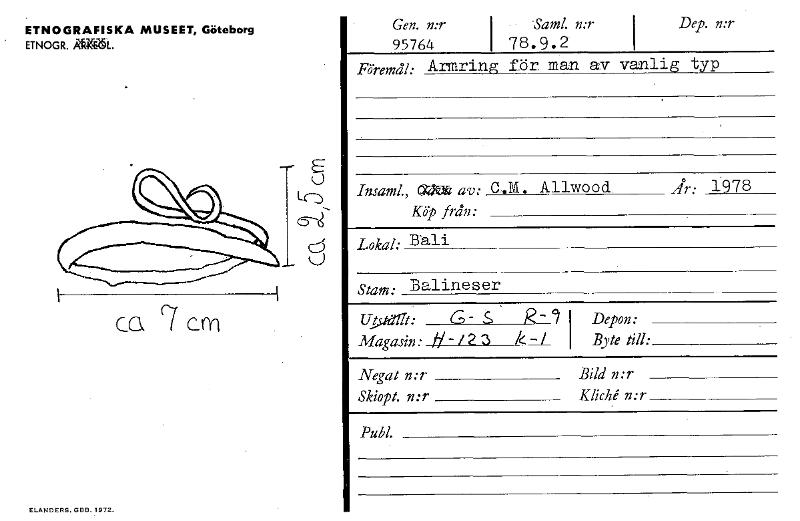 ETNOGRAFISKA MUSEET, Göteborg
ETNOGR. ARKEOL.
ca 2,5 cm
ca 7 cm
ELANDERS, GBG. 1972.
Gen. n:r Saml. n:r Dep. n:r
95764 78.9.2
Föremål: Armring för man av vanlig typ
Insaml., av: C.M. Allwood År: 1978
Köp från:
Lokal: Bali
Stam: Balineser
Utställt: G-S R-9 Depon:
Magasin: H-123 K-1 Byte till:
Negat n:r Bild n:r
Skiopt. n:r Kliché n:r
Publ.